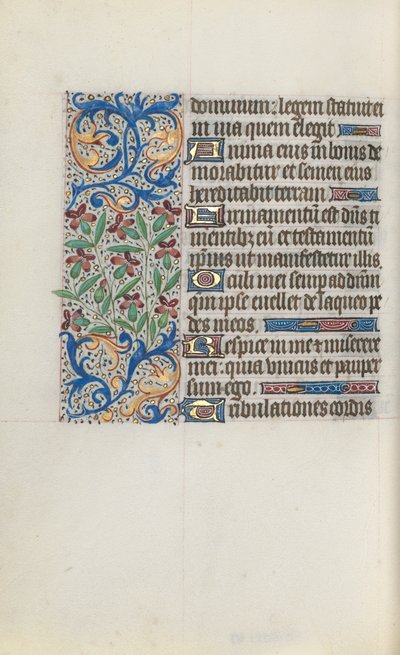 dominum: legem statuit ei
in via quem elegit
Anima eius in bonis de
morabitur et semen eius
hereditabit terram
Firmamentū est dn̄s ti
mentibz eū et testamentū
ipsius ut manifestetur illis
Oculi mei semp ad dnm
qm ipse euellet de laqueo pe
des meos
Respice in me & miserere
mei: quia vnicus et pauper
sum ego
Tribulationes cordis